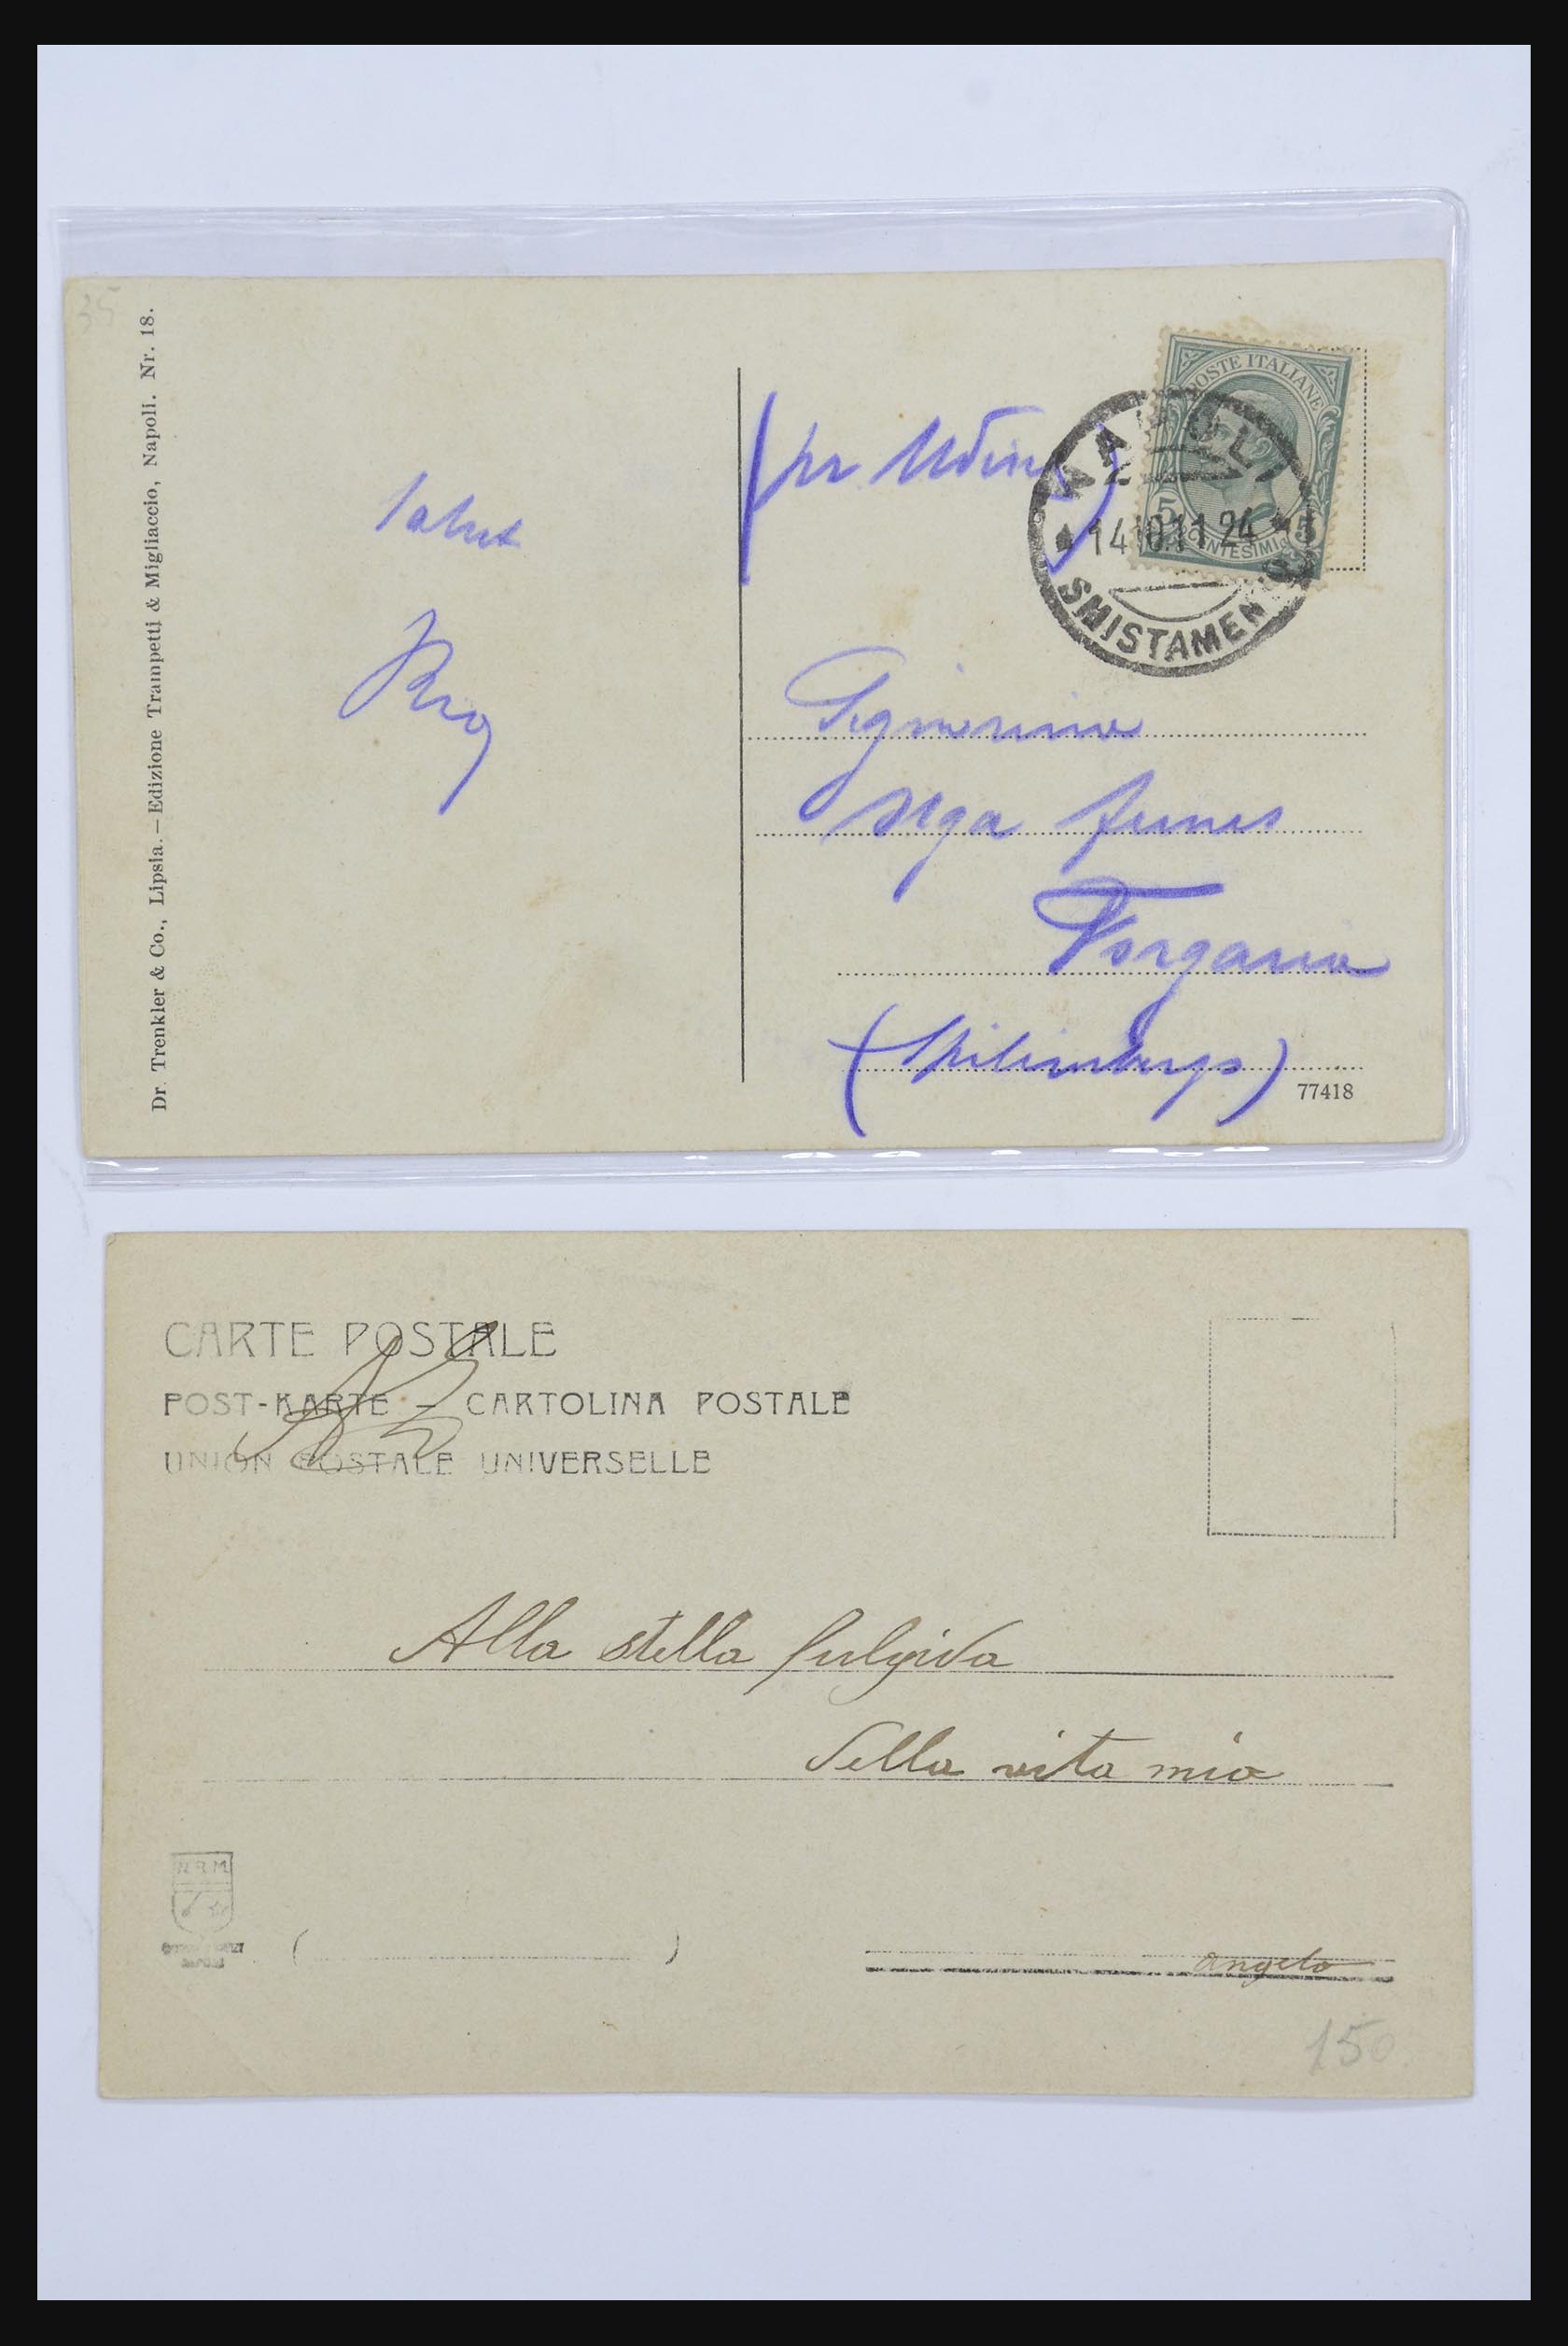 35
Dr. Trenkler & Co., Lipsia. — Edizione Trampetti & Migliaccio, Napoli. Nr. 18.
(per Udine)
POSTE ITALIANE
5 CENTESIMI 5
NAPOLI
14 10.11 24
SMISTAMEN
Saluti
Signorina
Funes
Forgaria
(Spilimbergo)
77418
CARTE POSTALE
POST-KARTE — CARTOLINA POSTALE
UNION POSTALE UNIVERSELLE
Alla stella fulgida
della vita mia
N.R.M.
( )
Angelo
150